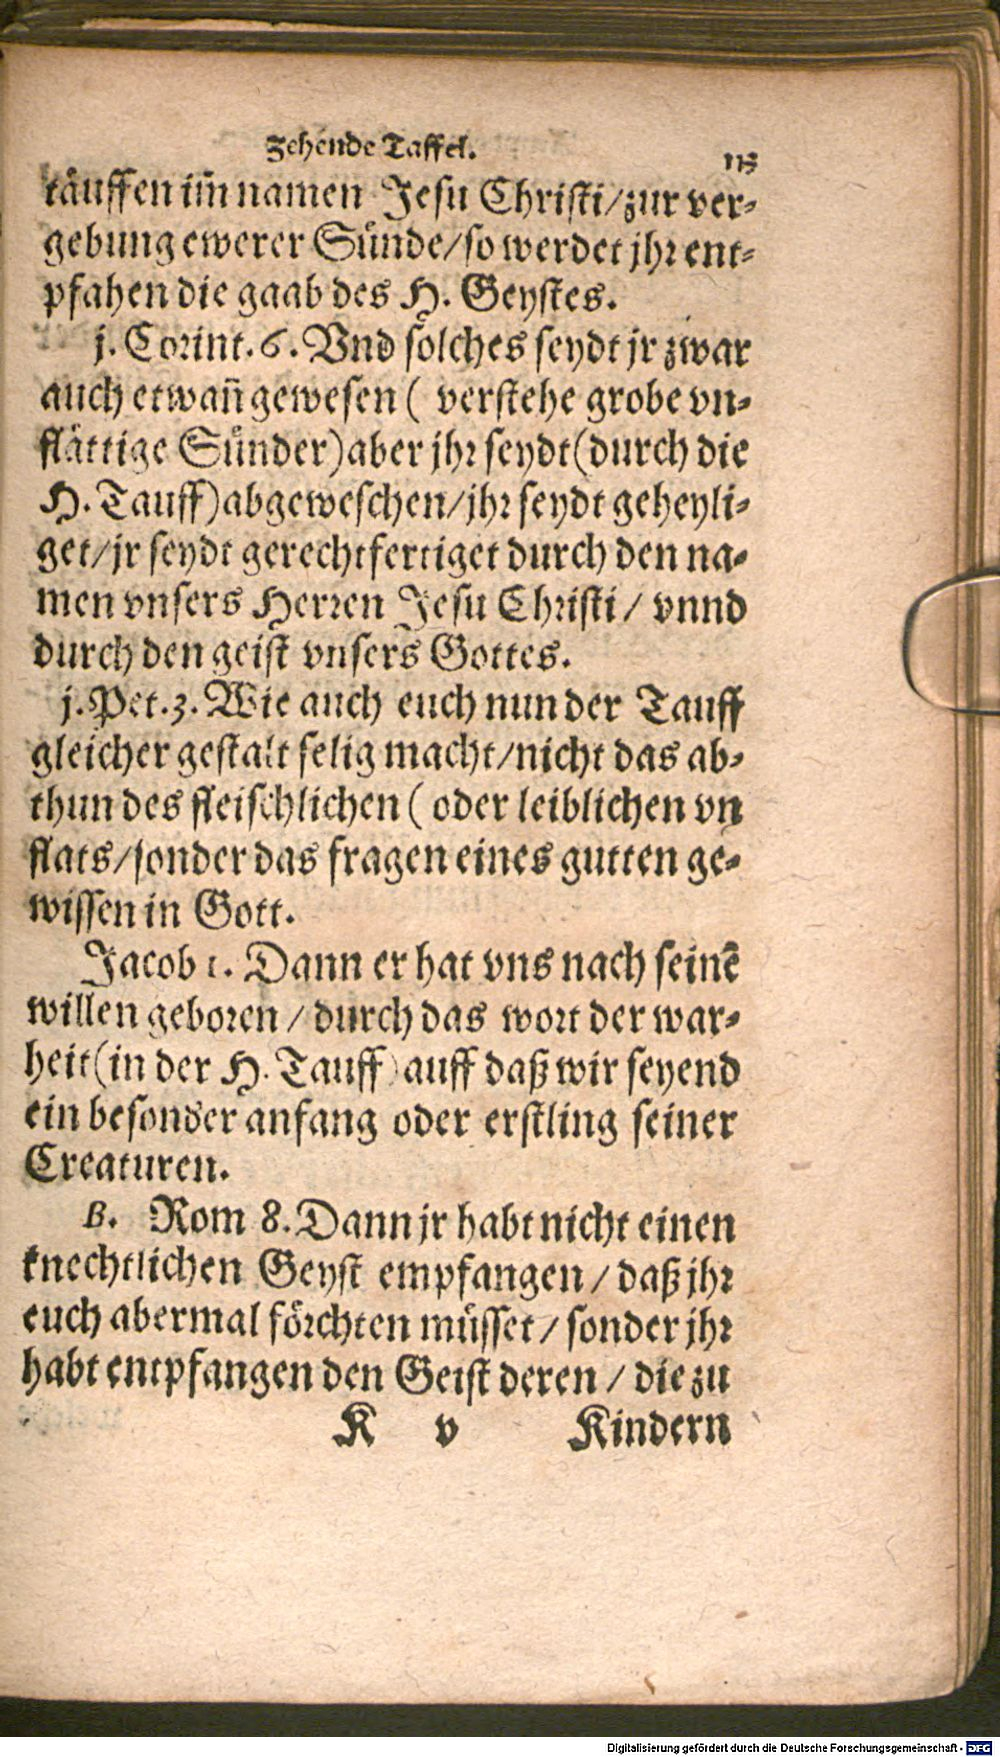 Zehende Taffel.
113
täuffen im̃ namen Jesu Christi/zur ver-
gebung ewerer Sünde/so werdet jhr ent-
pfahen die gaab des H. Geystes.
j. Corint. 6. Vnd solches seydt jr zwar
auch etwañ gewesen ( verstehe grobe vn-
flättige Sünder) aber jhr seydt (durch die
H. Tauff) abgeweschen/jhr seydt geheyli-
get/jr seydt gerechtfertiget durch den na-
men vnsers Herren Jesu Christi / vnnd
durch den geist vnsers Gottes.
j. Pet. 3. Wie auch euch nun der Tauff
gleicher gestalt selig macht/nicht das ab-
thun des fleischlichen ( oder leiblichen vn
flats/sonder das fragen eines gutten ge-
wissen in Gott.
Jacob 1. Dann er hat vns nach seinē
willen geboren / durch das wort der war-
heit (in der H. Tauff) auff daß wir seyend
ein besonder anfang oder erstling seiner
Creaturen.
B. Rom 8. Dann jr habt nicht einen
knechtlichen Geyst empfangen / daß jhr
euch abermal förchten müsset / sonder jhr
habt entpfangen den Geist deren / die zu
K v Kindern
Digitalisierung gefördert durch die Deutsche Forschungsgemeinschaft - DFG